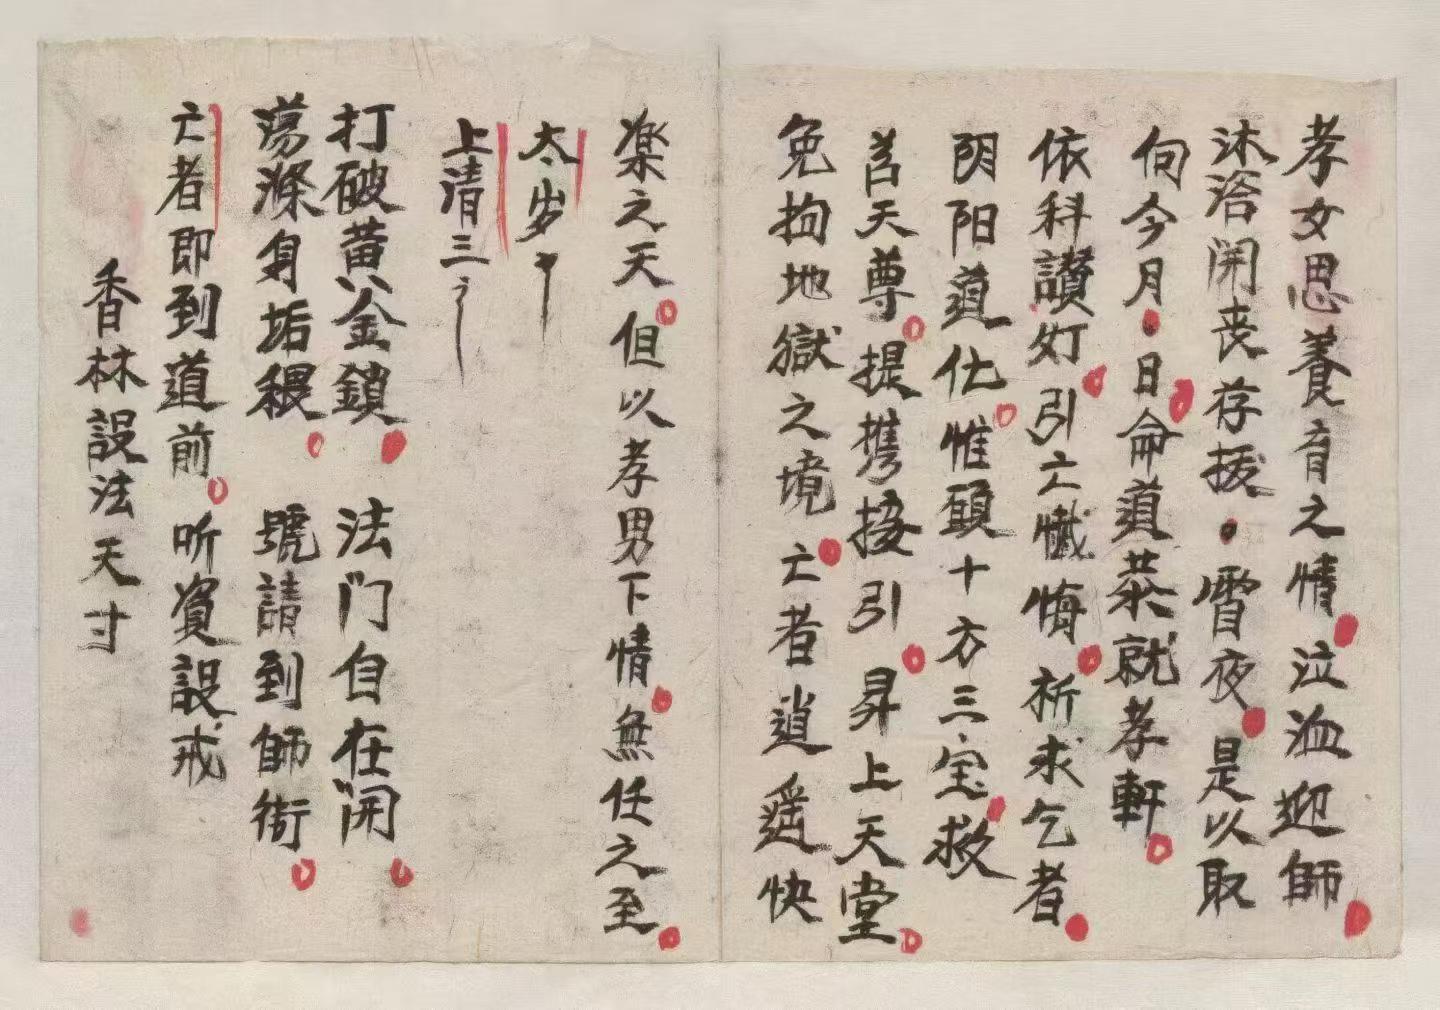 孝女思養育之情泣血迎師
沐浴開丧存援霄夜是以取
向今月日命道恭就孝軒
依科讃灯引亡懺悔祈求乞者
阴阳道仕惟願十方三宝救
苦天尊提携接引昇上天堂
免拘地獄之境亡者逍遥快
楽之天但以孝男下情無任之至
太岁
上清三
打破黄金鎖法门自在開
荡滌身垢穢號請到師衙
亡者即到道前听資設戒
香林設法天寸